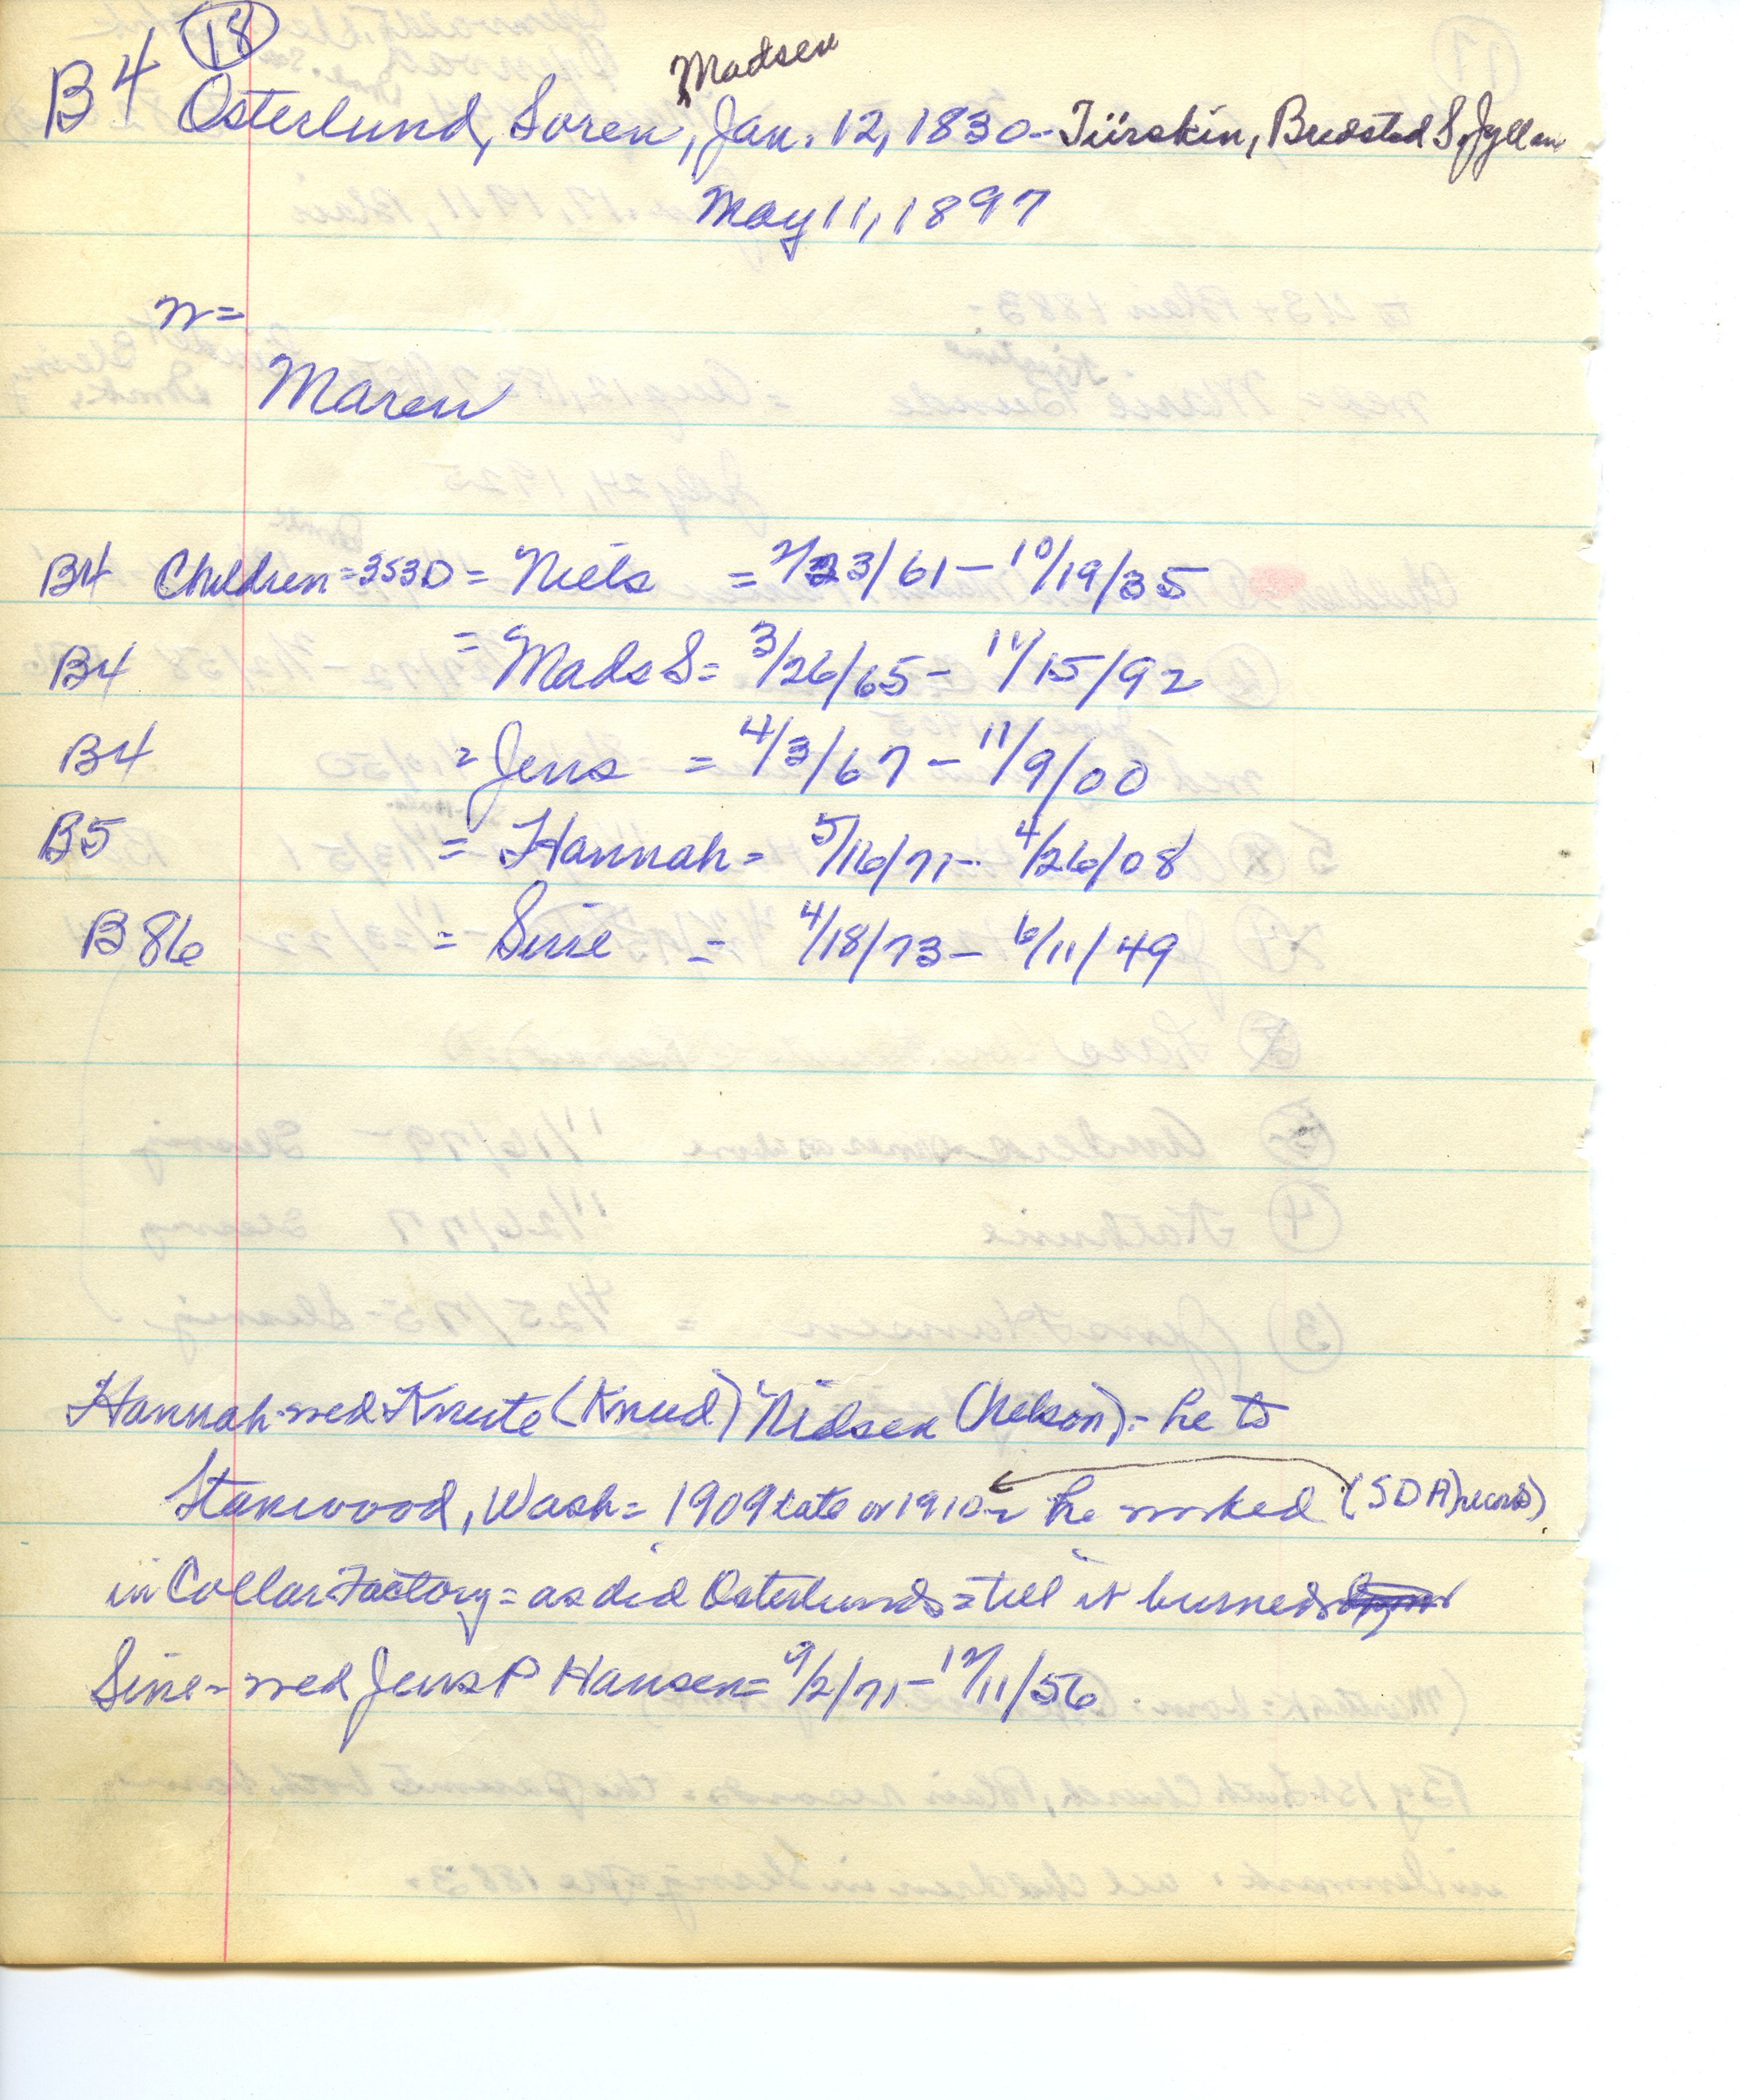 18
Madsen
B4 Osterlund, Soren, Jan. 12, 1830 - Tiirskin, Bredsted S. Jyllan
May 11, 1897
m=
Maren
B4 Children = 353D = Niels = 2/23/61 - 10/19/35
B4 = Mads S = 3/26/65 - 11/15/92
B4 = Jens = 4/3/67 - 11/9/00
B5 = Hannah = 5/16/71 - 4/26/08
B86 = Sine = 4/18/73 - 6/11/49
Hannah - med Knute (Knud) Nielsen (Nelson) - he to
Stanwood, Wash = 1909 late or 1910 - he worked (SDA) records)
in Collar Factory = as did Osterlunds = till it burned
Sine - med Jens P Hansen = 9/2/71 - 12/11/56